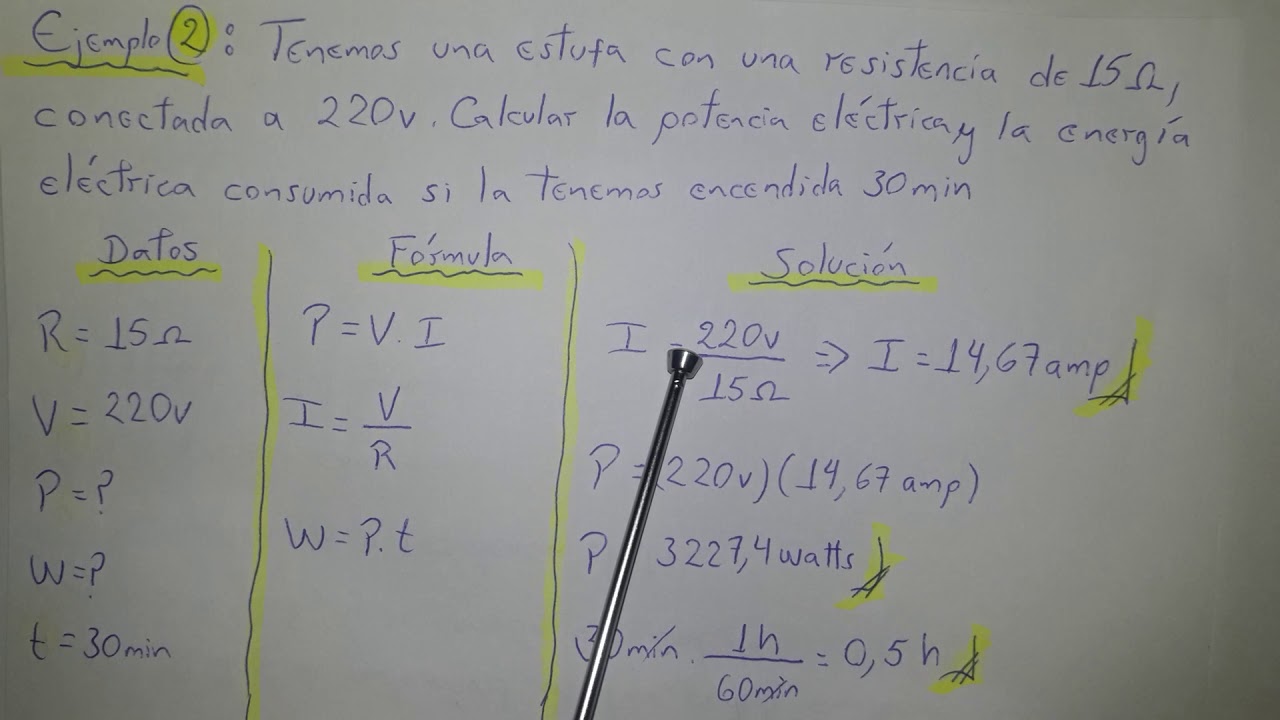 Ejemplo 2: Tenemos una estufa con una resistencia de 15Ω,
conectada a 220v. Calcular la potencia eléctrica y la energía
eléctrica consumida si la tenemos encendida 30min
Datos
R = 15Ω
V = 220v
P = ?
W = ?
t = 30min
Fórmula
P = V. I
I = V
R
W = P. t
Solución
I = 220v ⇒ I = 14,67 amp
15Ω
P = (220v)(14,67 amp)
P 3227,4 watts
30min. 1h = 0,5 h
60min